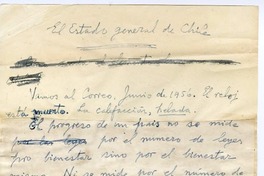 El Estado general de Chile
Vimos al Correo, Junio de 1956. El reloj
está muerto. La calefacción, helada.
El progreso de un país no se mide
por el número de leyes
pro bienestar sino por el bienestar
Ni se mide por el número de